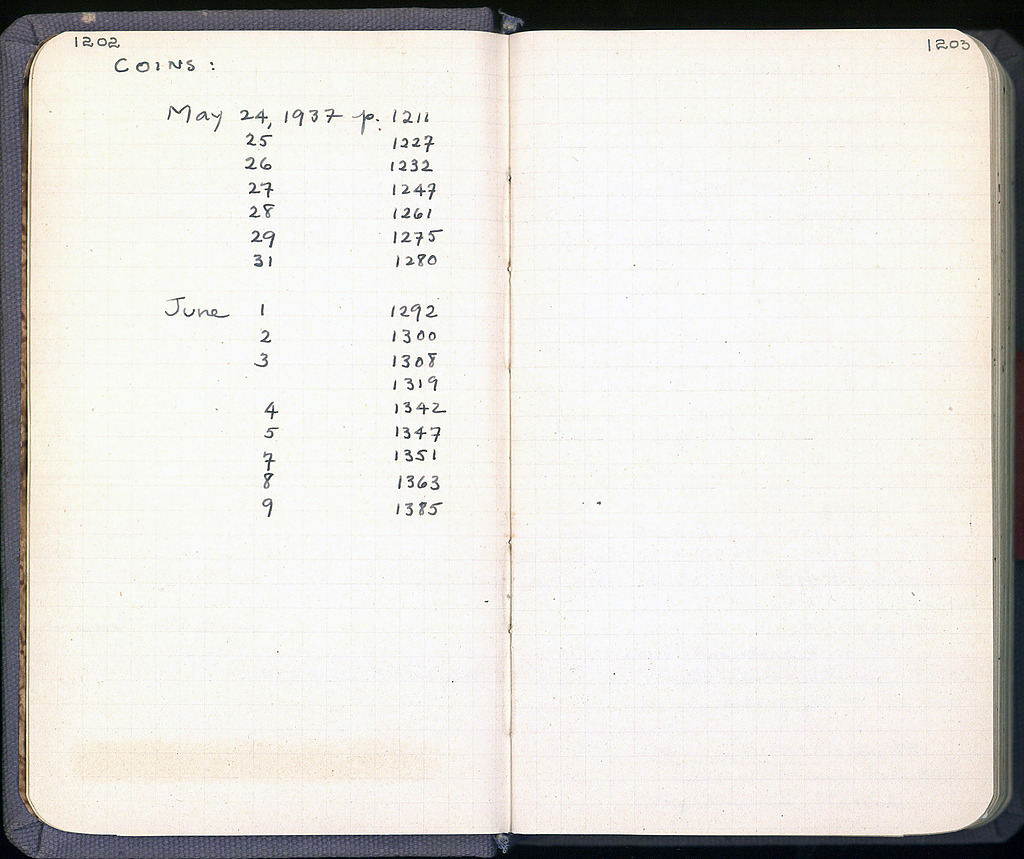 1202
COINS:
May 24, 1937 p. 1211
25 1227
26 1232
27 1247
28 1261
29 1275
31 1280
June 1 1292
2 1300
3 1308
1319
4 1342
5 1347
7 1351
8 1363
9 1385
1203